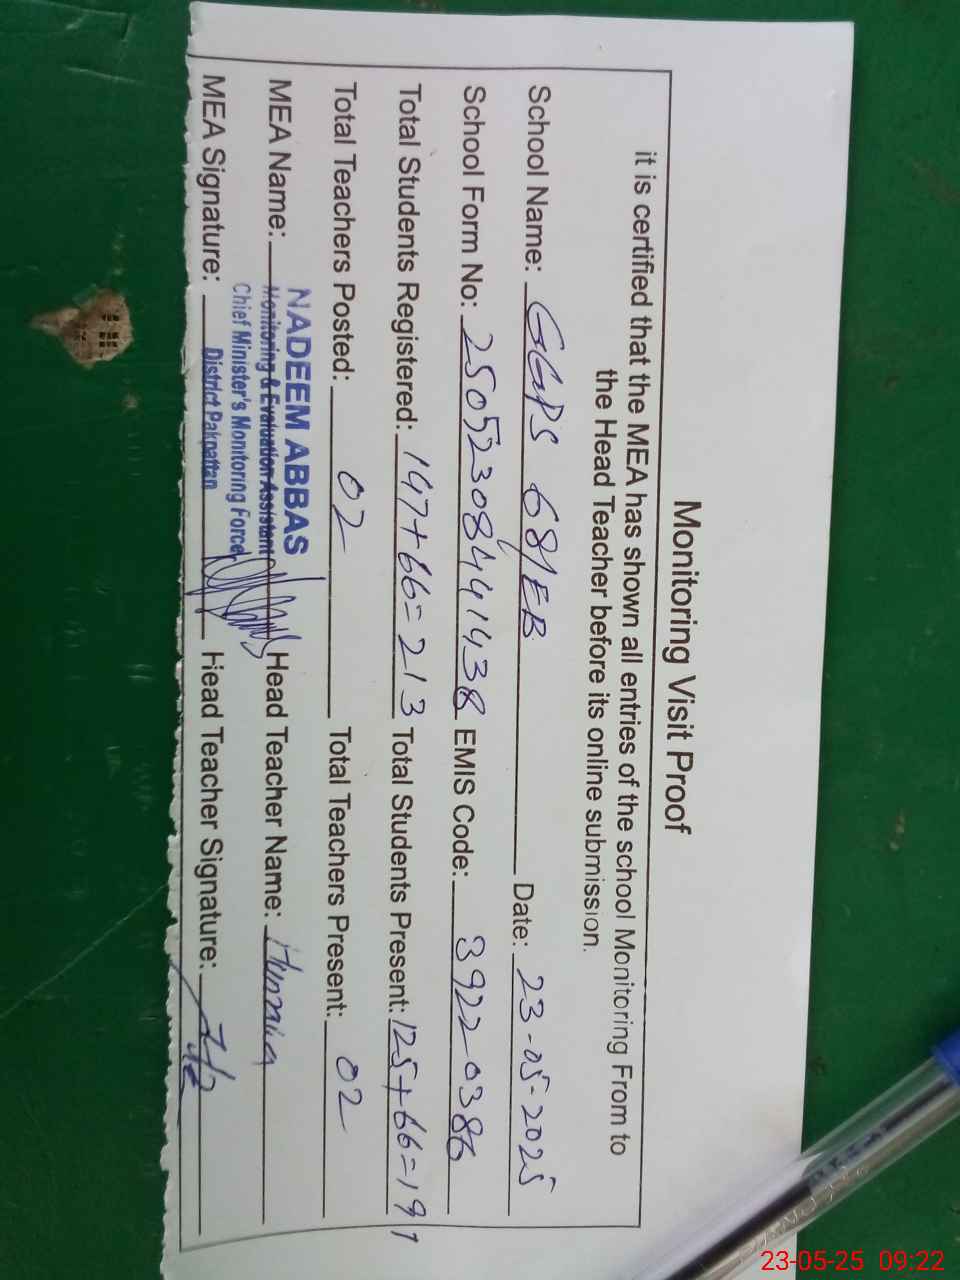 Monitoring Visit Proof
it is certified that the MEA has shown all entries of the school Monitoring From to
the Head Teacher before its online submission.
School Name: GGPS 68/EB Date: 23-05-2025
School Form No: 250523084441438 EMIS Code: 39220386
Total Students Registered: 147+66=213 Total Students Present: 125+66=191
Total Teachers Posted: 02 Total Teachers Present: 02
MEA Name: NADEEM ABBAS Head Teacher Name: Humaira
Monitoring & Evaluation Assistant
Chief Minister's Monitoring Force
District Pakpattan
MEA Signature: Head Teacher Signature:
23-05-25 09:22